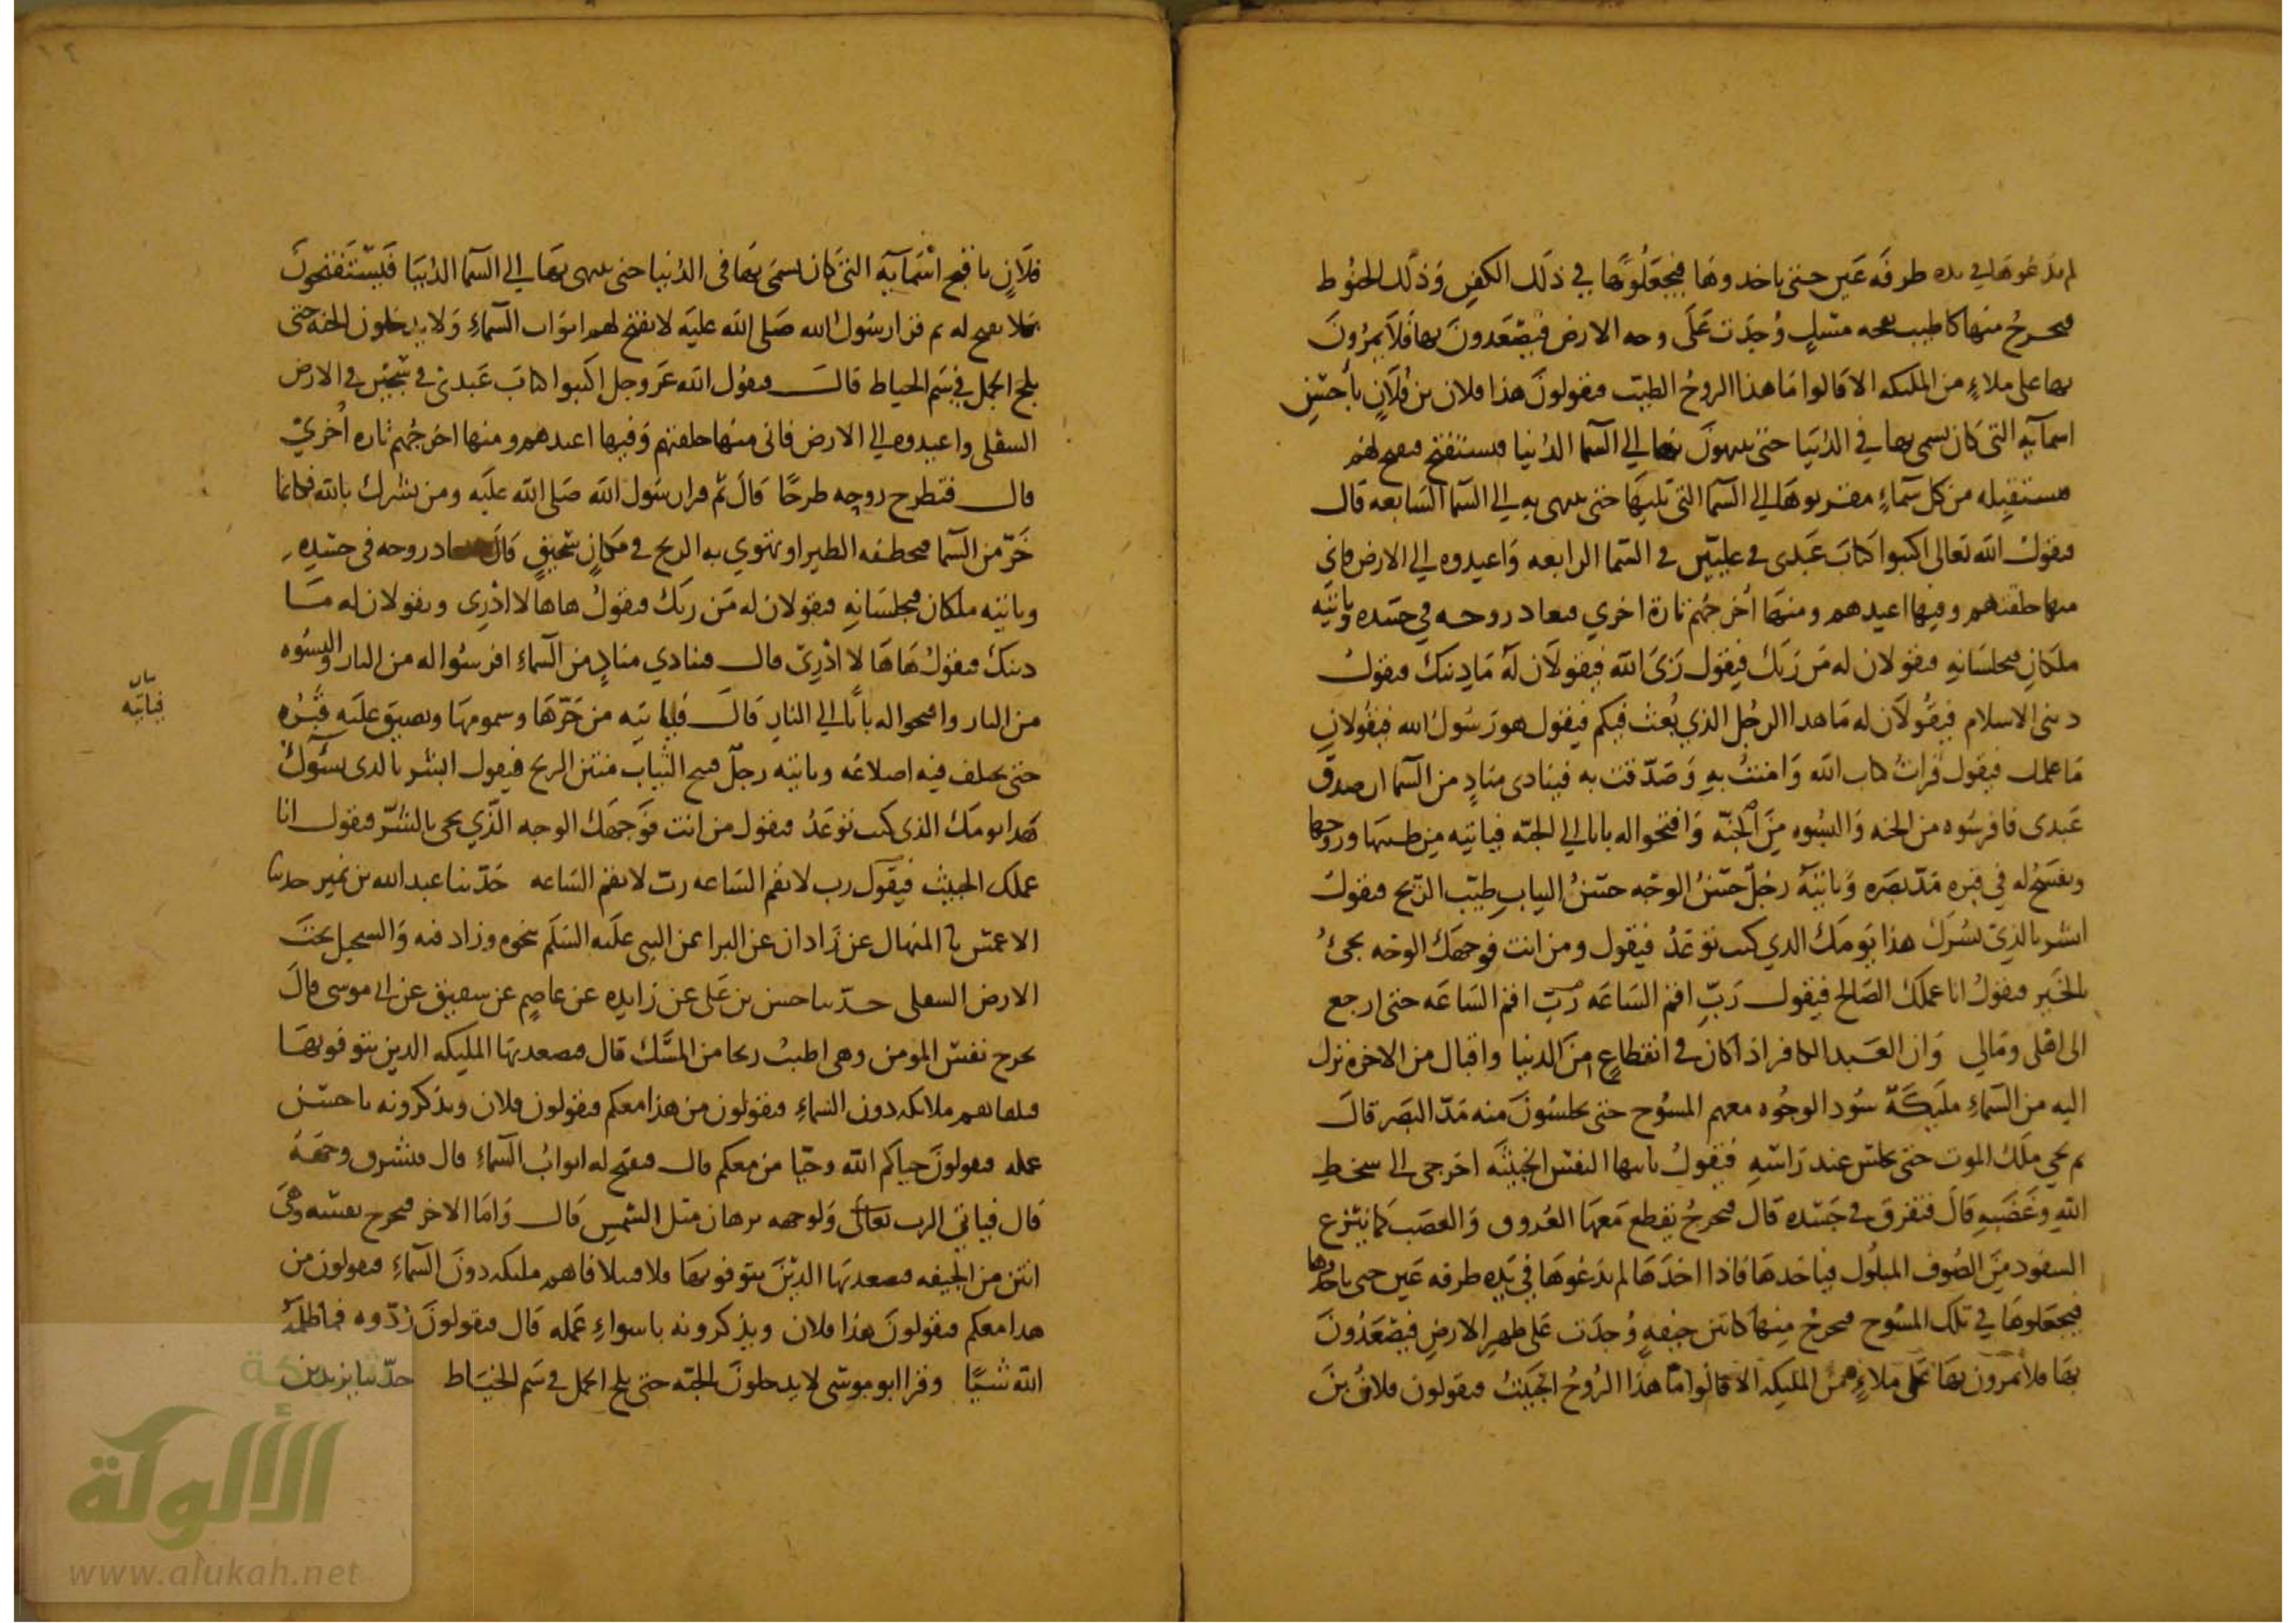 لم يدعوها في يده طرفه عين حتى ياخدوها فيجعلوها في ذلك الكفن وذلك الحنوط
فيخرج منها كاطيب نفحه مسك وُجدت على وجه الارض فيصعدون بها فلا يمرون
بها على ملاءٍ من الملىكه الا قالوا ما هذا الروح الطيب فيقولون هذا فلان بن فلان باحسن
اسمايه التي كان يسمى بها في الدنيا حتى ينتهون بها الي السما الدنيا فيستفتح فيفتح لهم
فيستقبله من كل سماءٍ مقربوها الي السما التي تليها حتى ينتهى به الي السما السابعه قال
فيقول الله تعالى اكتبوا كتاب عبدى في عليين في السما الرابعه واعيدوه الي الارض فاني
منها خلقتهم وفيها اعيدهم ومنها اخرجهم تارة اخري فيعاد روحه في جسده وياتيه
ملكان فيجلسانه فيقولان له من ربك فيقول ربي الله فيقولان له ما دينك فيقول
دينى الاسلام فيقولان له ما هدا الرجل الذي بُعث فيكم فيقول هو رسول الله فيقولان
ما عملك فيقول قرات كتاب الله وامنت به وصدقت به فينادى منادٍ من السما ان صدق
عبدى فافرشوه من الجنه والبسوه من الجنة وافتحوا له بابا الي الجنة فياتيه من طيبها وروحها
ويفسح له في قبره مد بصره وياتيه رجل حسن الوجه حسن الثياب طيب الريح فيقول
ابشر بالذي يسرك هذا يومك الدي كنت توعد فيقول ومن انت فوجهك الوجه يجئ
بالخير فيقول انا عملك الصالح فيقول ربّ اقم الساعه ربّ اقم الساعه حتى ارجع
الى اهلى ومالي وان العبد الكافر اذا كان في انقطاع من الدنيا واقبال من الاخره نزل
اليه من السماء مليكة سود الوجوه معهم المسوح حتى يجلسون منه مد البصر قال
ثم يجي ملك الموت حتى يجلس عند راسه فيقول يايتها النفس الخبيثه اخرجى الى سخط
الله وغضبه قال فتفرق في جسده قال فيخرج يقطع معها العروق والعصب كما ينزع
السفود من الصوف المبلول فياخدها فاذا اخدها لم يدعوها في يده طرفه عين حتى ياخدوها
فيجعلوها في تلك المسوح فيخرج منها كانتن جيفه وُجدت على ظهر الارض فيصعدون
بها فلا يمرون بها على ملاءٍ من المليكه الا قالوا ما هذا الروح الخبيث فيقولون فلان بن
فلان باقبح اسمايه التى كان يسمى بها في الدنيا حتى ينتهى بها الي السما الدنيا فيستفتحون
فلا يفتح له ثم قرا رسول الله صلى الله عليه لا تفتح لهم ابواب السماء ولا يدخلون الجنه حتى
يلج الجمل في سم الخياط قال فيقول الله عز وجل اكتبوا كتاب عبدي في سجين في الارض
السفلى واعيدوه الي الارض فاني منها خلقتهم وفيها اعيدهم ومنها اخرجهم تاره اخري
قال فتطرح روحه طرحًا قال ثم قرا رسول الله صلى الله عليه ومن يشرك بالله فكانما
خرّ من السما فتخطفه الطير او تهوي به الريح في مكان سحيق قال فيعاد روحه في جسده
وياتيه ملكان فيجلسانه فيقولان له من ربك فيقول هاها لا ادرى ويقولان له ما
دينك فيقول هاها لا ادري قال فينادي منادٍ من السماء افرشوا له من النار والبسوه
من النار وافتحوا له بابًا الي النار قال فياتيه من حرّها وسمومها ويضيق عليه قبره
حتى يختلف فيه اضلاعه وياتيه رجل قبيح الثياب منتن الريح فيقول ابشر بالدى يسوك
هدا يومك الذى كنت توعد فيقول من انت فوجهك الوجه الذي يجى بالشرّ فيقول انا
عملك الخبيث فيقول رب لا تقم الساعه رب لا تقم الساعه حدثنا عبد الله بن نمير حدثنا
الاعمش نا المنهال عن زاذان عن البرا عن النبي عليه السلم بنحوه وزاد فيه والسجيل تحت
الارض السفلى حدثنا حسين بن على عن زايده عن عاصم عن شقيق عن ابي موسى قال
يخرج نفس المومن وهى اطيب ريحا من المسك قال فيصعد بها المليكه الدين يتوفونها
فيلقاهم ملائكه دون السماء فيقولون من هذا معكم فيقولون فلان ويذكرونه باحسن
عمله فيقولون حياكم الله وحيا من معكم قال فيفتح له ابواب السماء قال فيشرق وجهه
قال فياتي الرب تعالى ولوجهه برهان مثل الشمس قال واما الاخر فيخرج نفسه وهى
انتن من الجيفه فيصعد بها الذين يتوفونها فيلقاهم مليكه دون السماء فيقولون من
هدا معكم فيقولون هذا فلان ويذكرونه باسواءِ عمله قال فيقولون ردّوه فما ظلمه
الله شيئًا وقرا ابو موسى لا يدخلون الجنه حتى يلج الجمل في سم الخياط حدثنا يزيد بن
فياتيه
شبكة
الألوكة
www.alukah.net